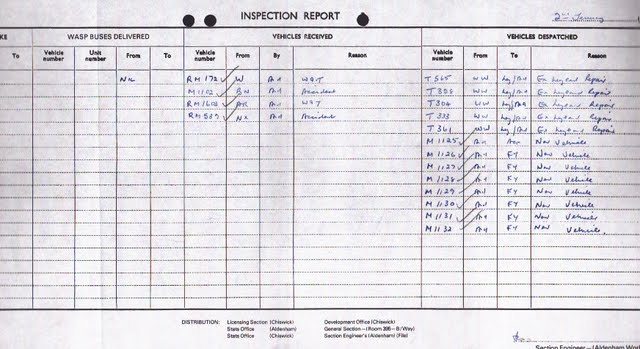 INSPECTION REPORT 2nd January
KE WASP BUSES DELIVERED VEHICLES RECEIVED VEHICLES DESPATCHED
To Vehicle number Unit number From To Vehicle number From By Reason Vehicle number From To Reason
RM 172 W Ad T 565 WW Ex Leyland Repair
M1102 BN Ad Accident T WW Ex Leyland Repair
RM1608 AR T 304 WW Ex Leyland Repair
RM 589 Ad Accident T 333 WW Ex Leyland Repair
T 361 WW Ex Leyland Repair
M 1125 Ad New Vehicle
M 1126 Ad FY New Vehicle
M 1127 Ad FY New Vehicle
M 1128 Ad FY New Vehicle
M 1129 Ad FY New Vehicle
M 1130 Ad FY New Vehicle
M 1131 Ad FY New Vehicle
M 1132 Ad FY New Vehicle
DISTRIBUTION: Licensing Section (Chiswick) Development Office (Chiswick)
Stats Office (Aldenham) General Section – (Room 395 – B/Way)
Stats Office (Chiswick) Section Engineer's (Aldenham) (File)
Section Engineer – (Aldenham Wor